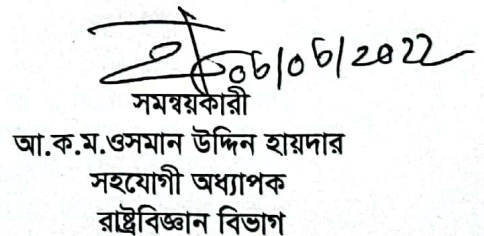 06/06/2022
সমন্বয়কারী
আ.ক.ম.ওসমান উদ্দিন হায়দার
সহযোগী অধ্যাপক
রাষ্ট্রবিজ্ঞান বিভাগ